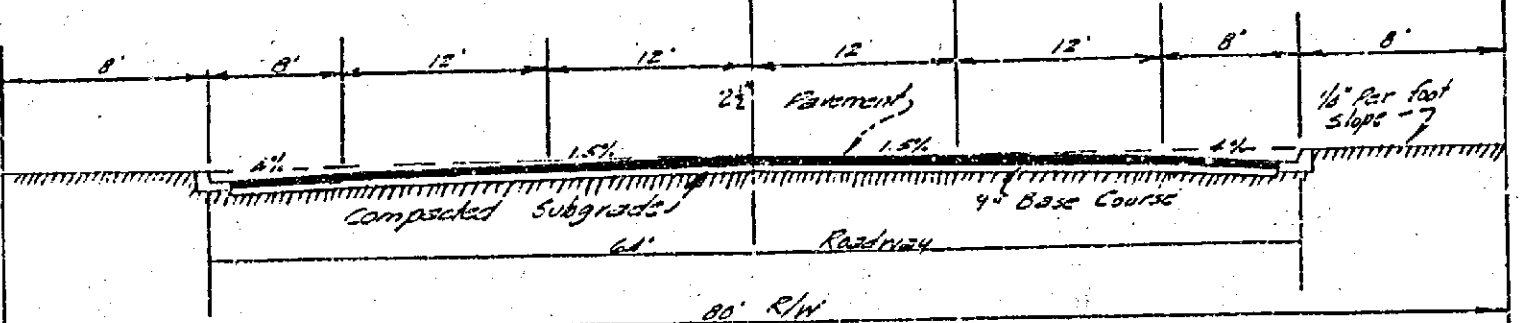 8' 8' 12' 12' 12' 12' 8' 8'
2½" Pavement
per foot
slope
4% 1.5% 1.5% 4%
Compacted Subgrade
Base Course
64' Roadway
80' R/W